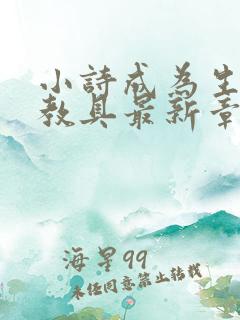 小詩成為生
教具最新章
海星99
未任同意禁止转载